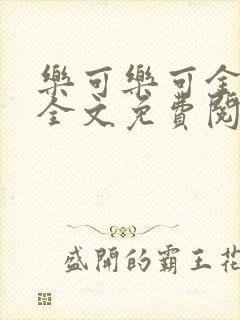 樂可樂可全
全文免費閱
盛開的霸王花